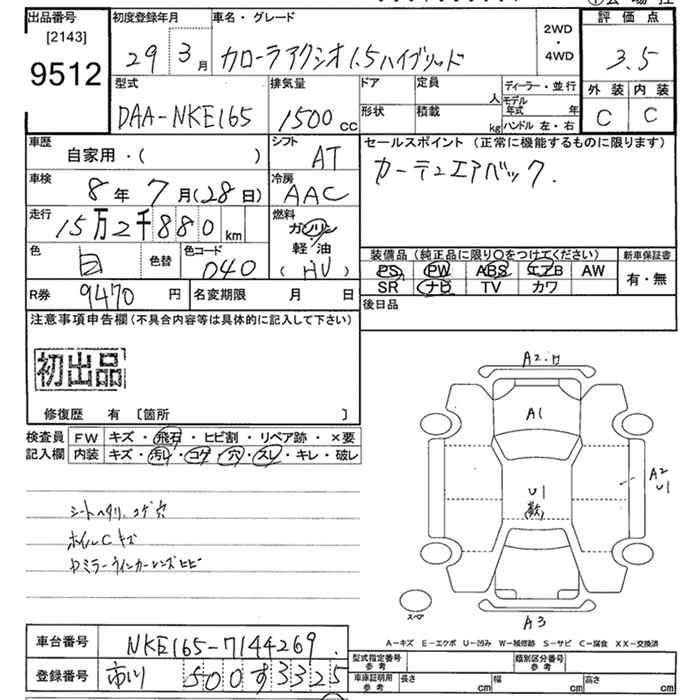 出品番号
[2143]
9512
初度登録年月
29 3月
車名・グレード
カローラアクシオ 1.5ハイブリッド
2WD
・
4WD
評価点
3.5
外装 内装
C C
型式
DAA-NKE165
排気量
1500cc
ドア
形状
定員 人
積載 kg
ディーラー・並行
モデル年式 年
ハンドル 左・右
車歴
自家用・( )
シフト
AT
セールスポイント (正常に機能するものに限ります)
カーテンエアバック.
車検
8年7月(28日)
冷房
AAC
走行
15万2千880km
燃料
ガソリン
軽・油
(HV)
色
白
色替
色コード
040
装備品 (純正品に限り○をつけてください)
PS PW ABS エアB AW
SR ナビ TV カワ
新車保証書
有・無
R券 9470円
名変期限 月 日
後日品
注意事項申告欄 (不具合内容等は具体的に記入して下さい)
初出品
修復歴 有 [箇所 ]
検査員記入欄
FW キズ・飛石・ヒビ割・リペア跡・×要
内装 キズ・汚レ・コゲ・穴・スレ・キレ・破レ
シートヘタリ、コゲ穴
ホイルCキズ
Dミラーウインカーレンズヒビ
A2
A1
U1
A2
U1
A3
スペア
A-キズ E-エクボ U-凹み W-補修跡 S-サビ C-腐食 XX-交換済
車台番号 NKE165-7144269
登録番号 市川 500 す 3325
型式指定番号 参考
類別区分番号 参考
車庫証明用 参考
長さ cm 幅 cm 高さ cm